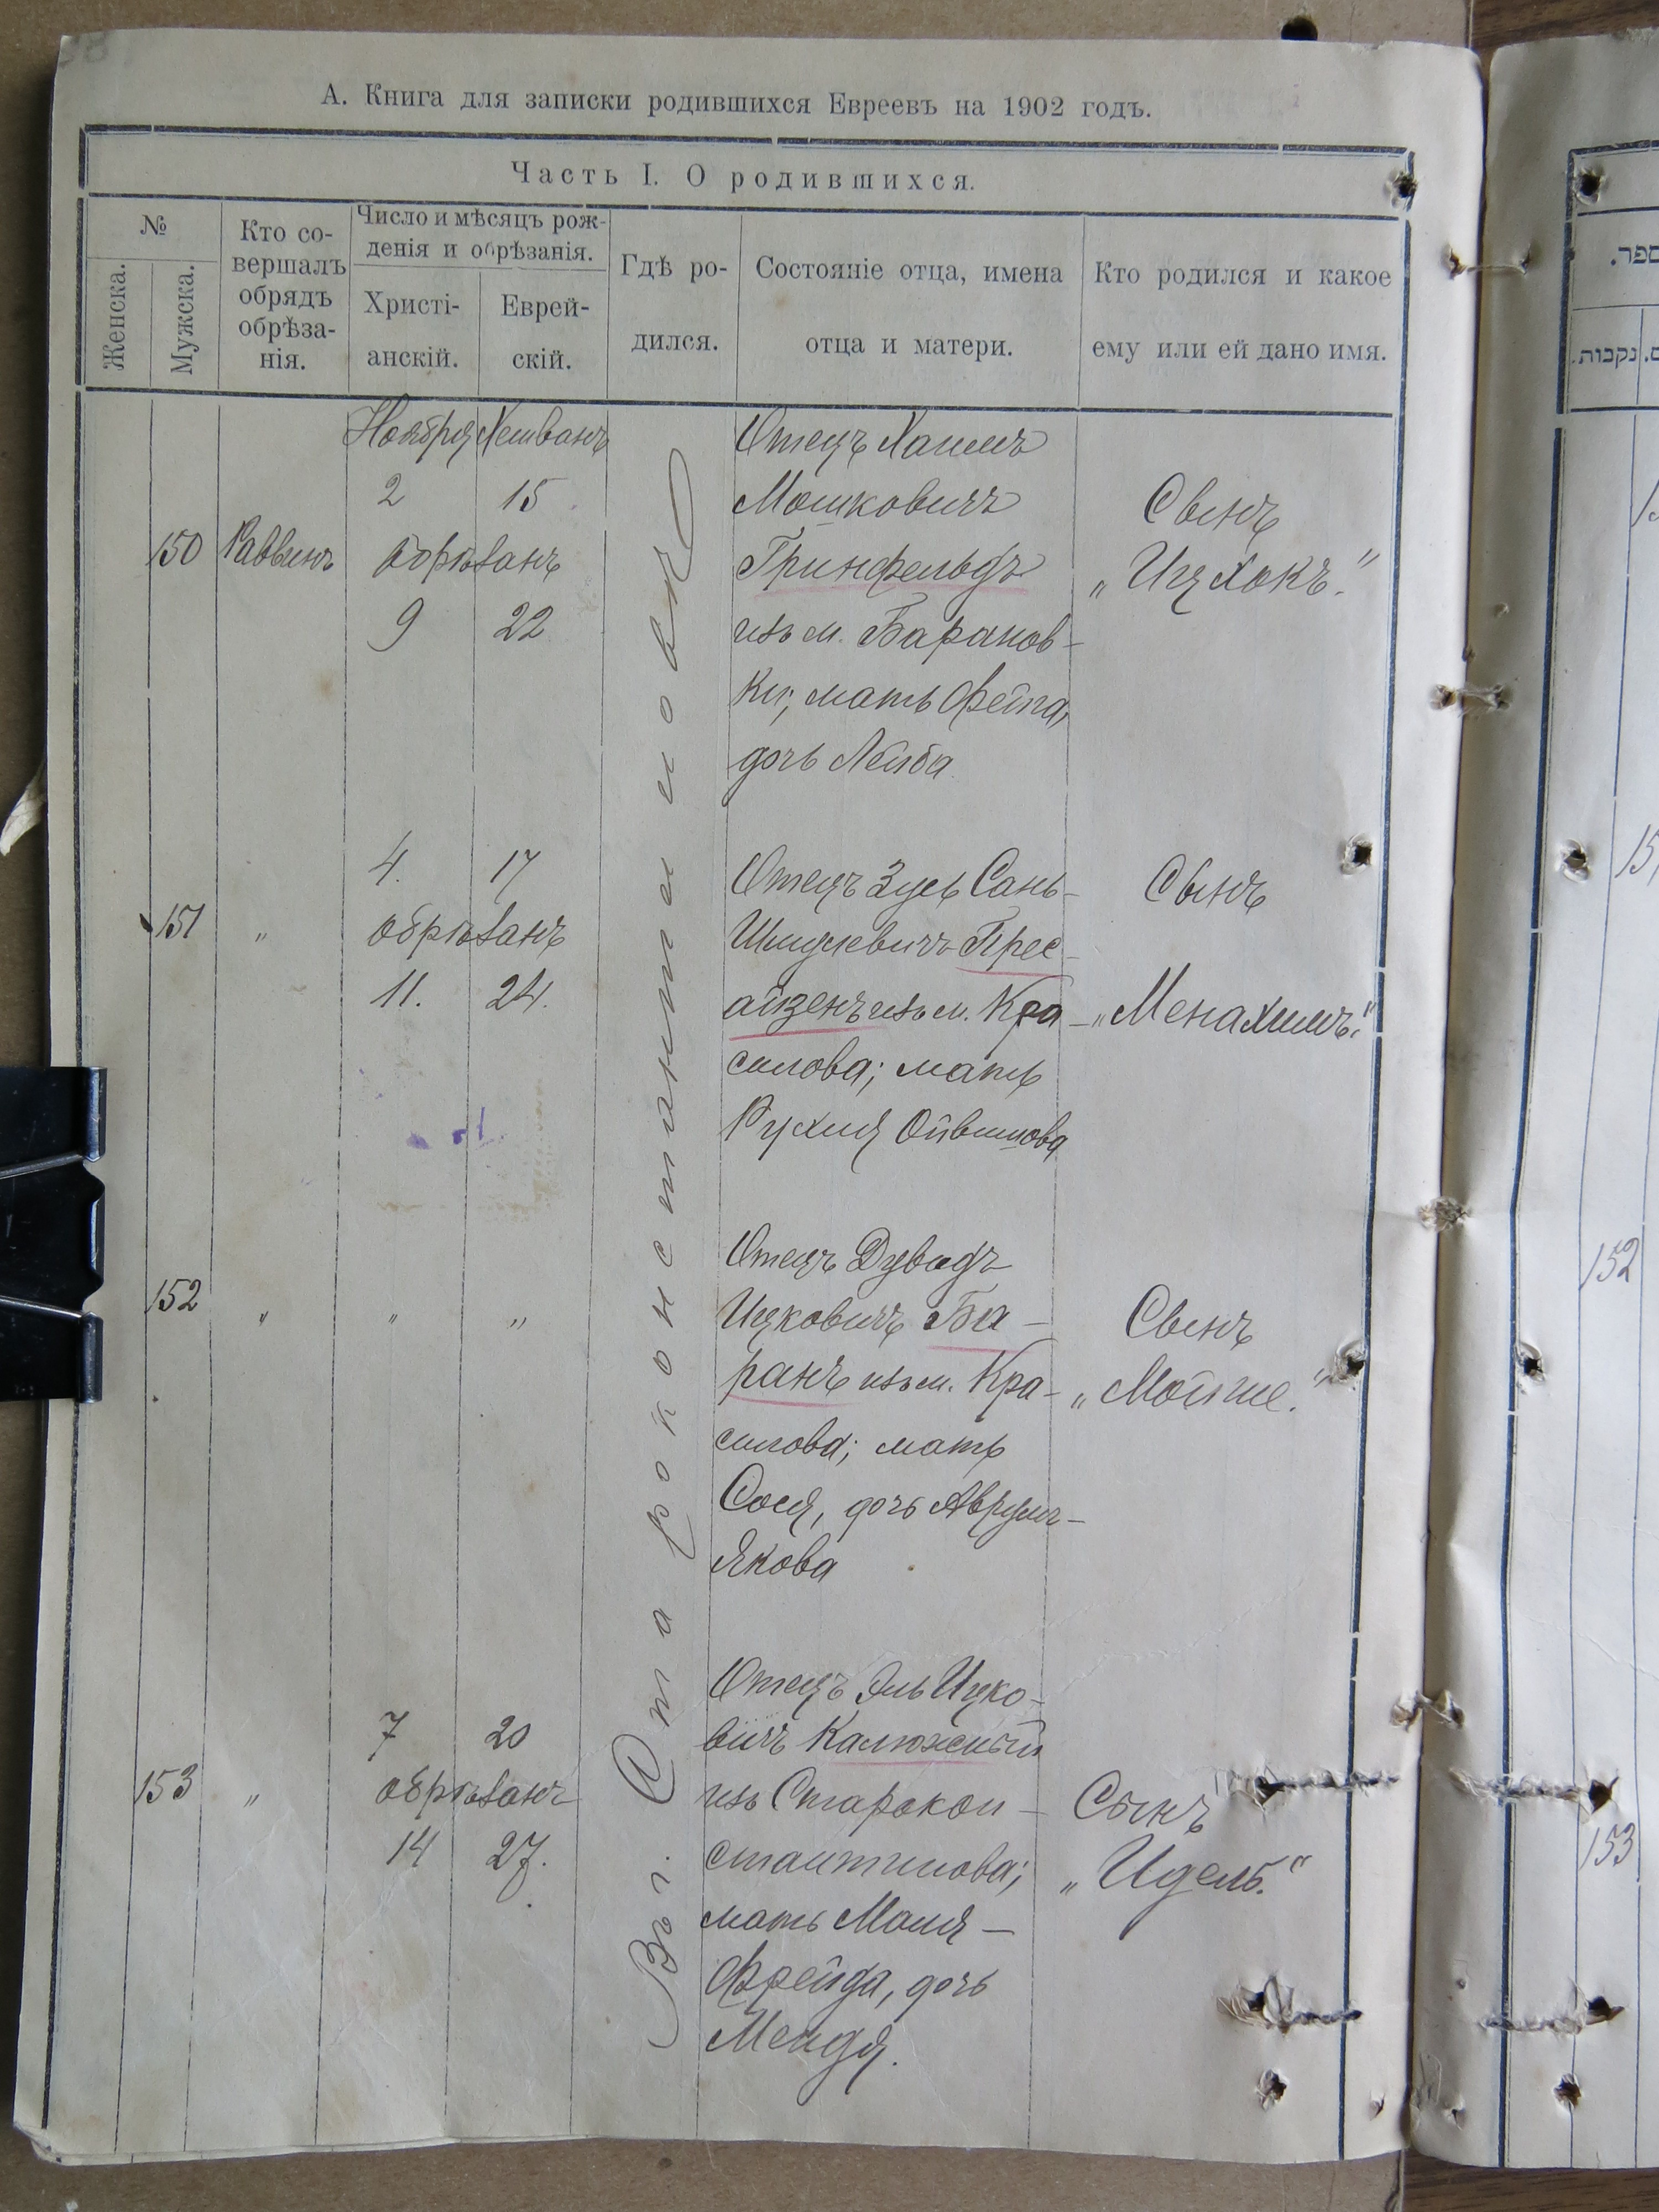 А. Книга для записки родившихся Евреевъ на 1902 годъ.
Часть I. О родившихся.
№
Женска.
Мужска.
Кто со-
вершалъ
обрядъ
обрѣза-
нія.
Число и мѣсяцъ рож-
денія и обрѣзанія.
Христі-
анскій.
Еврей-
скій.
Гдѣ ро-
дился.
Состояніе отца, имена
отца и матери.
Кто родился и какое
ему или ей дано имя.
Ноября Хешванъ
2 15
150 Раввинъ обрѣзанъ
9 22
Въ г. Староконстантиновѣ
Отецъ Хаимъ
Мошковичъ
Гринфельдъ
изъ м. Баранов-
ки; мать Фейга,
дочь Лейба
Сынъ
„Ицхокъ."
4. 17
151 „ обрѣзанъ
11. 24.
Отецъ Зусь Сань-
Шмулевичъ Прес-
айзенъ изъ м. Кра-
силова; мать
Рухля
Сынъ
„Менахимъ."
152 „ „ „
Отецъ Дувидъ
Ицковичъ Ба-
ранъ изъ м. Кра-
силова; мать
Сося, дочь Аврумъ-
Якова
Сынъ
„Мойше."
7 20
153 „ обрѣзанъ
14 27.
Отецъ Эль Ицко-
вичъ Калюжный
изъ Старокон-
стантинова;
мать Маля-
Фрейда, дочь
Менделя.
Сынъ
„Идель."
ספר.
נקבות.
152
153